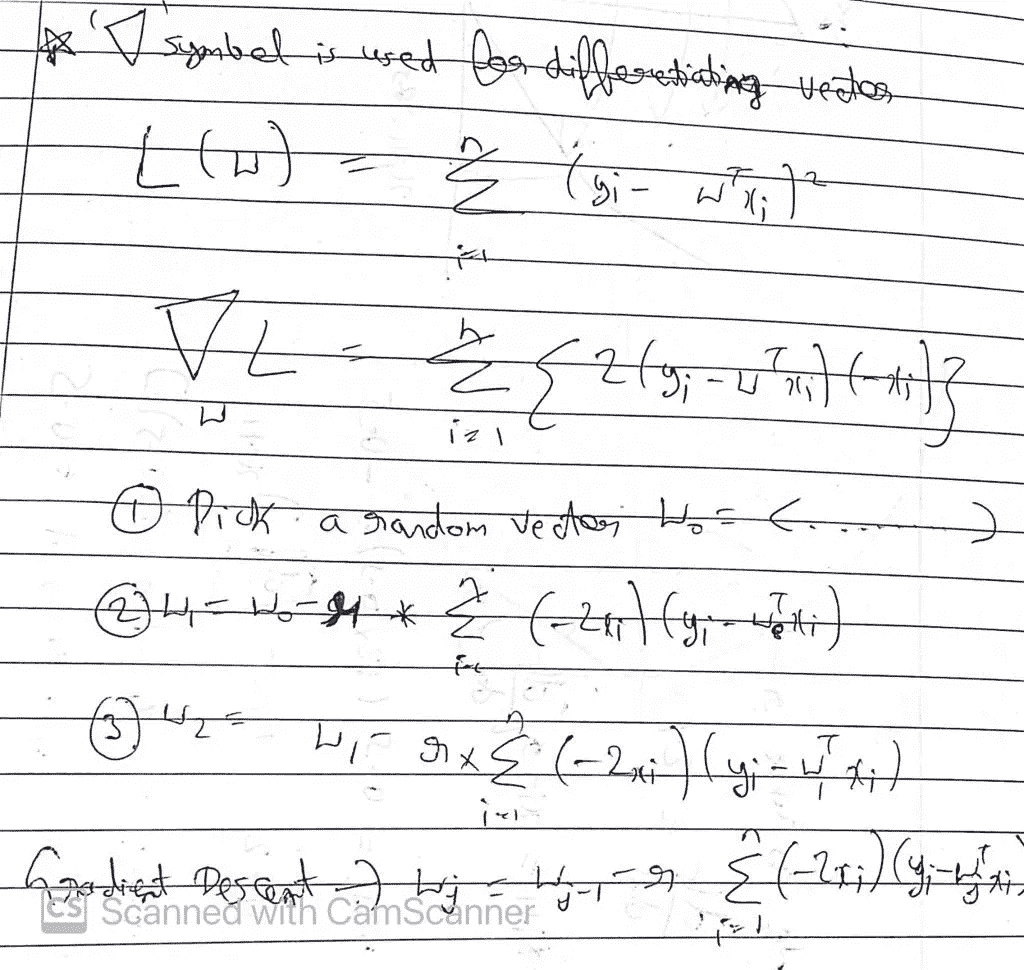 ☆ '∇' symbol is used for differetiating vector
L(w) = n Σ i=1 (yi - wᵀxi)²
∇w L = n Σ i=1 { 2(yi - wᵀxi) (-xi) }
① Pick a random vector W₀ = < ........ >
② W₁ = W₀ - r * n Σ i=1 (-2xi) (yi - w₀ᵀxi)
③ W₂ = W₁ - r × n Σ i=1 (-2xi) (yi - w₁ᵀxi)
Gradient Descent → Wj = Wj-1 - r n Σ i=1 (-2xi) (yi - wjᵀxi)
CS Scanned with CamScanner